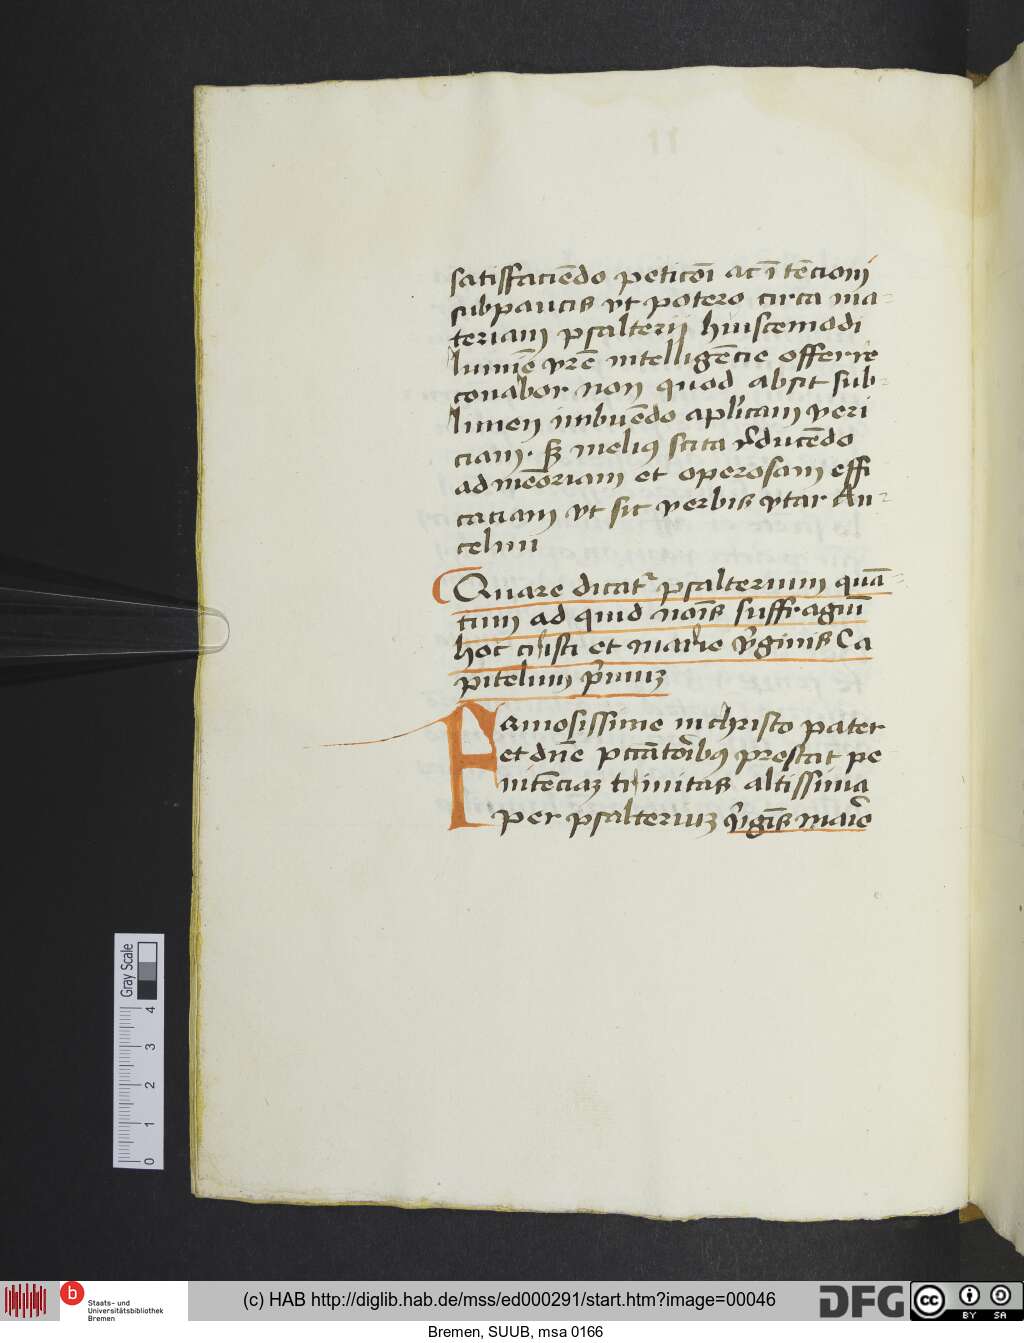 satisfaciēdo peticōi ac ī tēcioni
subpaucis vt potero circa ma-
teriam psalterij huiuscemodi
lumīe vrē intelligēcie offerre
conabor non quod absit sub-
limen imbuēdo aplicam peri
ciam. sʒ melius scita
ad meōriam et operosam effi
caciam vt sit verbis vtar An-
celmi
Quare dicatr psalterium quā-
tum ad quid noīs suffragiū
hoc cristi et marie virginis Ca
pitelum primuʒ
Famosissime in christo pater
et dn̄e pccātoribus prestat pe
nitēciaʒ trinitas altissima
per psalteriuʒ virgīs marie
Gray Scale
0 1 2 3 4
b
Staats- und
Universitätsbibliothek
Bremen
(c) HAB http://diglib.hab.de/mss/ed000291/start.htm?image=00046
DFG
cc BY SA
Bremen, SUUB, msa 0166